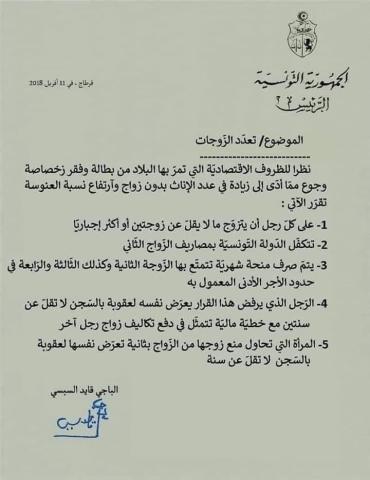 الجمهورية التونسية
الرئيس
قرطاج ، في 11 أفريل 2018
الموضوع/ تعدّد الزّوجات
نظرا للظروف الاقتصاديّة التي تمرّ بها البلاد من بطالة وفقر زخصاصة
وجوع ممّا أدّى إلى زيادة في عدد الإناث بدون زواج وآرتفاع نسبة العنوسة
تقرّر الآتي :
1- على كلّ رجل أن يتزوّج ما لا يقلّ عن زوجتين أو أكثر إجباريّا
2- تتكفّل الدولة التّونسيّة بمصاريف الزّواج الثّاني
3- يتمّ صرف منحة شهريّة تتمتّع بها الزّوجة الثانية وكذلك الثّالثة والرّابعة في
حدود الأجر الأدنى المعمول به
4- الرّجل الذي يرفض هذا القرار يعرّض نفسه لعقوبة بالسّجن لا تقلّ عن
سنتين مع خطيّة ماليّة تتمثّل في دفع تكاليف زواج رجل آخر
5- المرأة التي تحاول منع زوجها من الزّواج بثانية تعرّض نفسها لعقوبة
بالسّجن لا تقلّ عن سنة
الباجي قايد السبسي